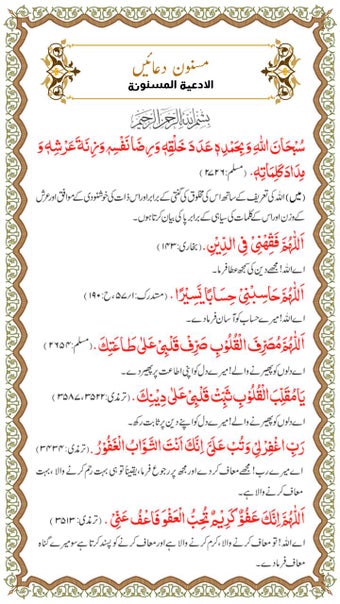 مسنون دعائیں
الادعية المسنونة
بسم الله الرحمن الرحیم
سُبْحَانَ اللهِ وَبِحَمْدِهٖ عَدَدَ خَلْقِهٖ وَرِضَا نَفْسِهٖ وَزِنَةَ عَرْشِهٖ وَ
مِدَادَ كَلِمَاتِهٖ. (مسلم: ۲۷۲۶)
(میں) اللہ کی تعریف کے ساتھ اس کی مخلوق کی گنتی کے برابر اور اس ذات کی خوشنودی کے موافق اور عرش
کے وزن اور اس کے کلمات کی سیاہی کے برابر پاکی بیان کرتا ہوں۔
اَللّٰهُمَّ فَقِّهْنِيْ فِي الدِّيْنِ. (بخاری: ۱۴۳)
اے اللہ! مجھے دین کی سمجھ عطا فرما۔
اَللّٰهُمَّ حَاسِبْنِيْ حِسَابًا يَّسِيْرًا. (مستدرک: ۵۷/۱، ح: ۱۹۰)
اے اللہ! میرے حساب کو آسان فرما دے۔
اَللّٰهُمَّ مُصَرِّفَ الْقُلُوْبِ صَرِّفْ قَلْبِيْ عَلٰى طَاعَتِكَ. (مسلم: ۲۶۵۴)
اے دلوں کو پھیرنے والے! میرے دل کو اپنی اطاعت پر پھیر دے۔
يَا مُقَلِّبَ الْقُلُوْبِ ثَبِّتْ قَلْبِيْ عَلٰى دِيْنِكَ. (ترمذی: ۳۵۲۲، ۳۵۸۷)
اے دلوں کو پھیرنے والے! میرے دل کو اپنے دین پر ثابت رکھ۔
رَبِّ اغْفِرْ لِيْ وَتُبْ عَلَيَّ اِنَّكَ اَنْتَ التَّوَّابُ الْغَفُوْرُ. (ترمذی: ۳۴۳۴)
اے میرے رب! مجھے معاف کر دے اور مجھ پر رجوع فرما، یقیناً تو ہی بہت رحم کرنے والا، بہت
معاف کرنے والا ہے۔
اَللّٰهُمَّ اِنَّكَ عَفُوٌّ كَرِيْمٌ تُحِبُّ الْعَفْوَ فَاعْفُ عَنِّيْ. (ترمذی: ۳۵۱۳)
اے اللہ! تو معاف کرنے والا، کرم کرنے والا ہے اور معاف کرنے کو پسند کرتا ہے سو میرے گناہ
معاف فرما دے۔